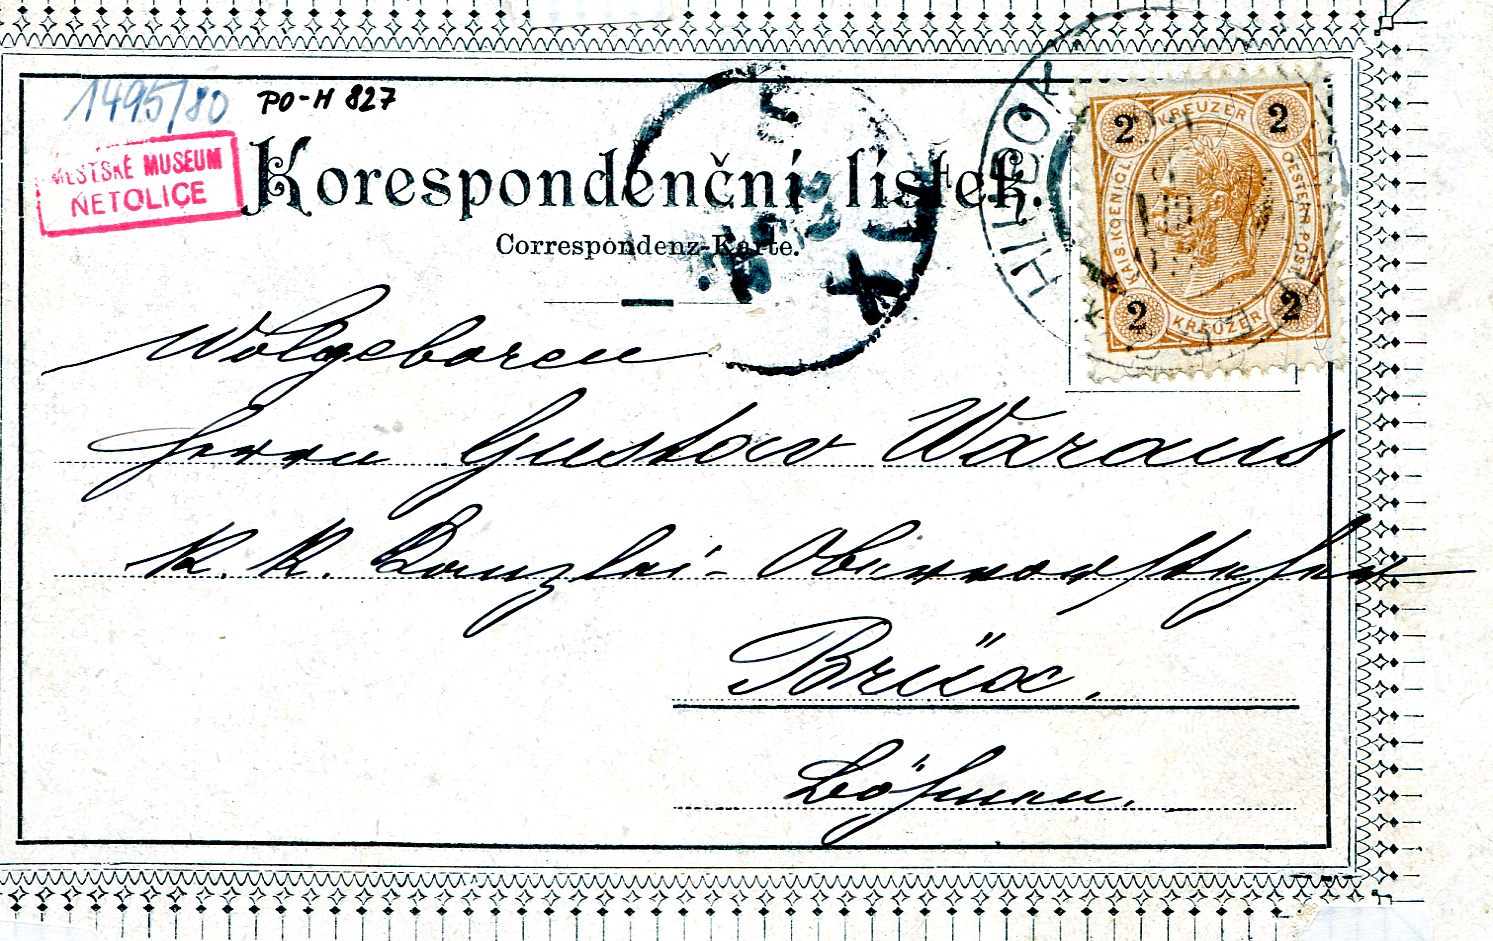 1495/80 PO-H 827
MĚSTSKÉ MUSEUM
NETOLICE
Korespondenční lístek.
Correspondenz-Karte.
2 KREUZER 2
KAIS. KOENIGL. OESTERR. POST
2 KREUZER 2
HLUBOK
Wolgeboren
Herrn Gustav Waraus
K. K. Kanzlei-Obervorsteher
Brüx.
Böhmen.